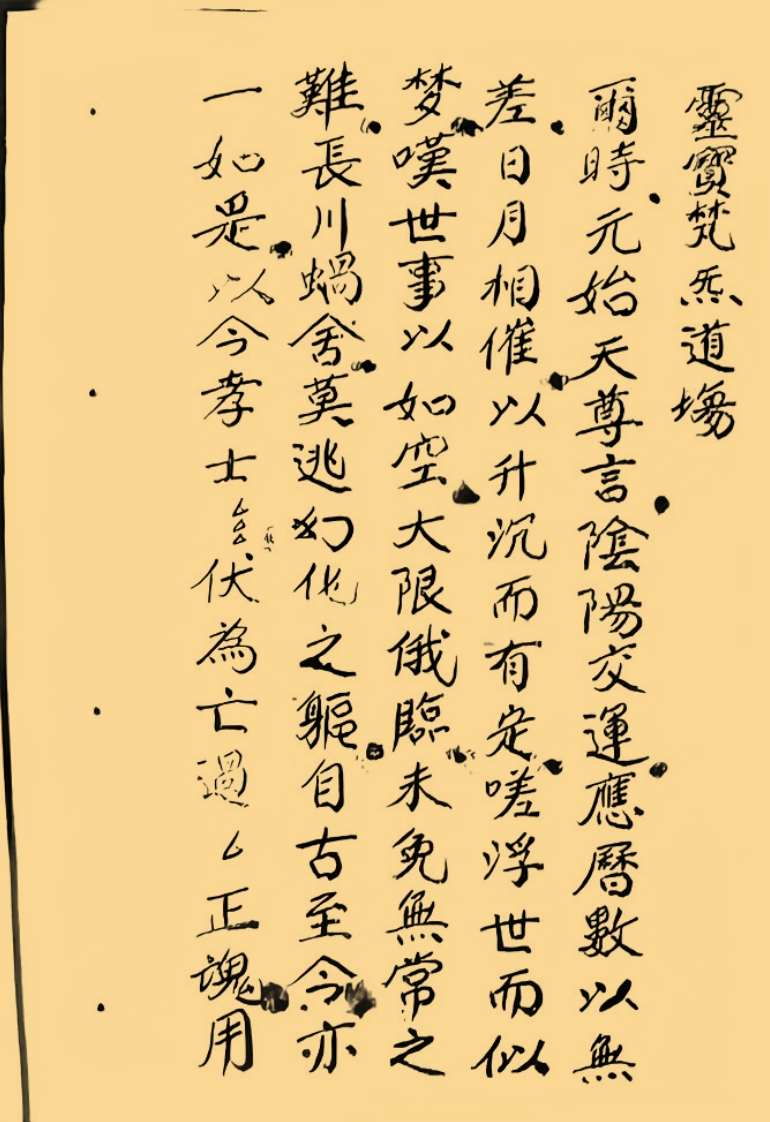 靈寶梵炁道塲
爾時元始天尊言陰陽交運應曆數以無
差日月相催以升沉而有定嗟浮世而似
梦嘆世事以如空大限俄臨未免無常之
難長川蝸舍莫逃幻化之軀自古至今亦
一如是以今孝士厶伏為亡過厶正魂用